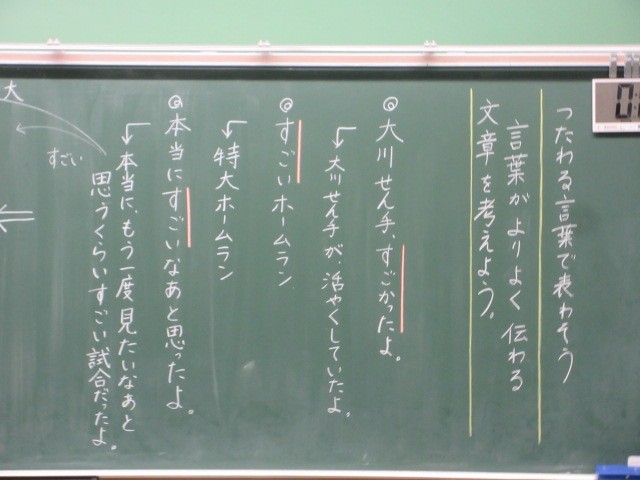 つたわる言葉で表わそう
言葉がよりよく伝わる
文章を考えよう。
◎大川せん手、すごかったよ。
大川せん手が、活やくしていたよ。
◎すごいホームラン
特大ホームラン
◎本当にすごいなあと思ったよ。
本当に、もう一度見たいなあと
思うくらいすごい試合だったよ。
すごい
大